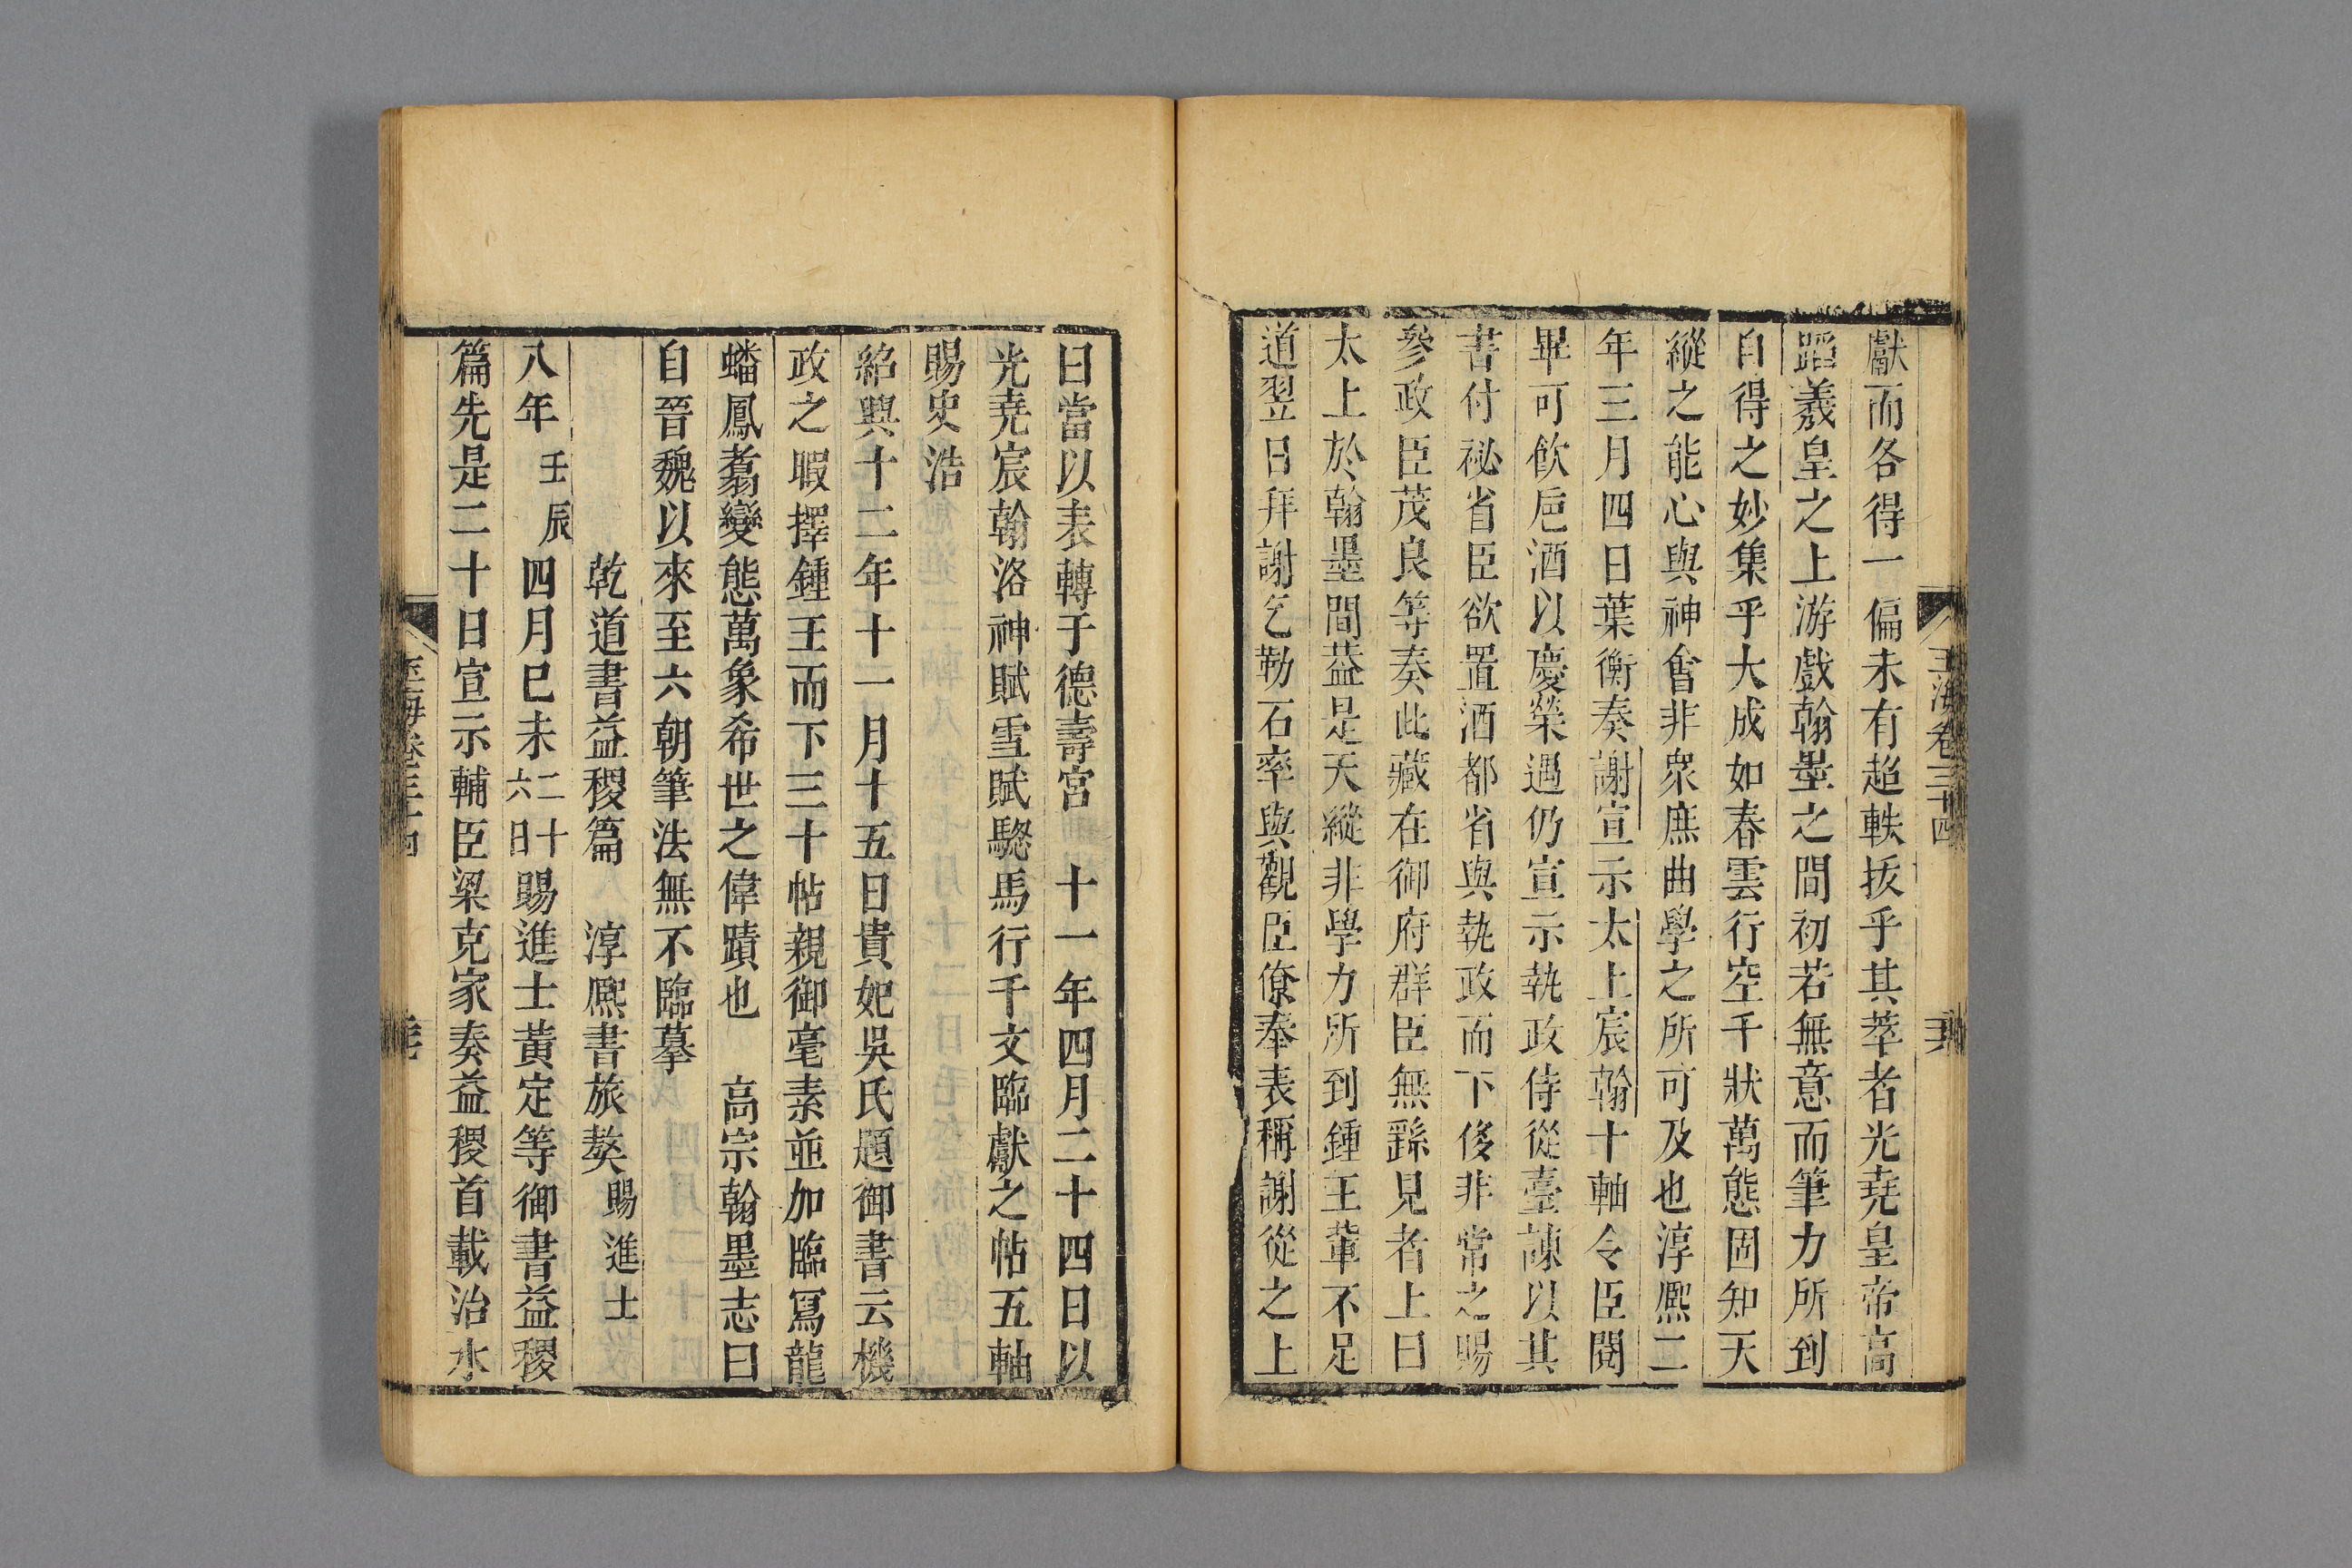 玉海卷三十四
獻而各得一偏未有超軼拔乎其萃者光堯皇帝高
蹈羲皇之上游戲翰墨之間初若無意而筆力所到
自得之妙集乎大成如春雲行空千狀萬態固知天
縱之能心與神會非衆庶曲學之所可及也淳熈二
年三月四日葉衡奏謝宣示太上宸翰十軸令臣閱
畢可飲巵酒以慶榮遇仍宣示執政侍從臺諫以其
書付祕省臣欲置酒都省與執政而下侈非常之賜
參政臣茂良等奏此藏在御府群臣無繇見者上曰
太上於翰墨間葢是天縱非學力所到鍾王輩不足
道翌日拜謝乞勒石率與觀臣僚奉表稱謝從之上
曰當以表轉于德壽宮　十一年四月二十四日以
光堯宸翰洛神賦雪賦驄馬行千文臨獻之帖五軸
賜史浩
紹興十二年十一月十五日貴妃吳氏題御書云機
政之暇擇鍾王而下三十帖親御毫素並加臨冩龍
蟠鳳翥變態萬象希世之偉蹟也　高宗翰墨志曰
自晉魏以來至六朝筆法無不臨摹
乾道書益稷篇　淳熈書旅獒賜進士
八年壬辰四月巳未二十六日賜進士黃定等御書益稷
篇先是二十日宣示輔臣梁克家奏益稷首載治水
玉海卷三十四